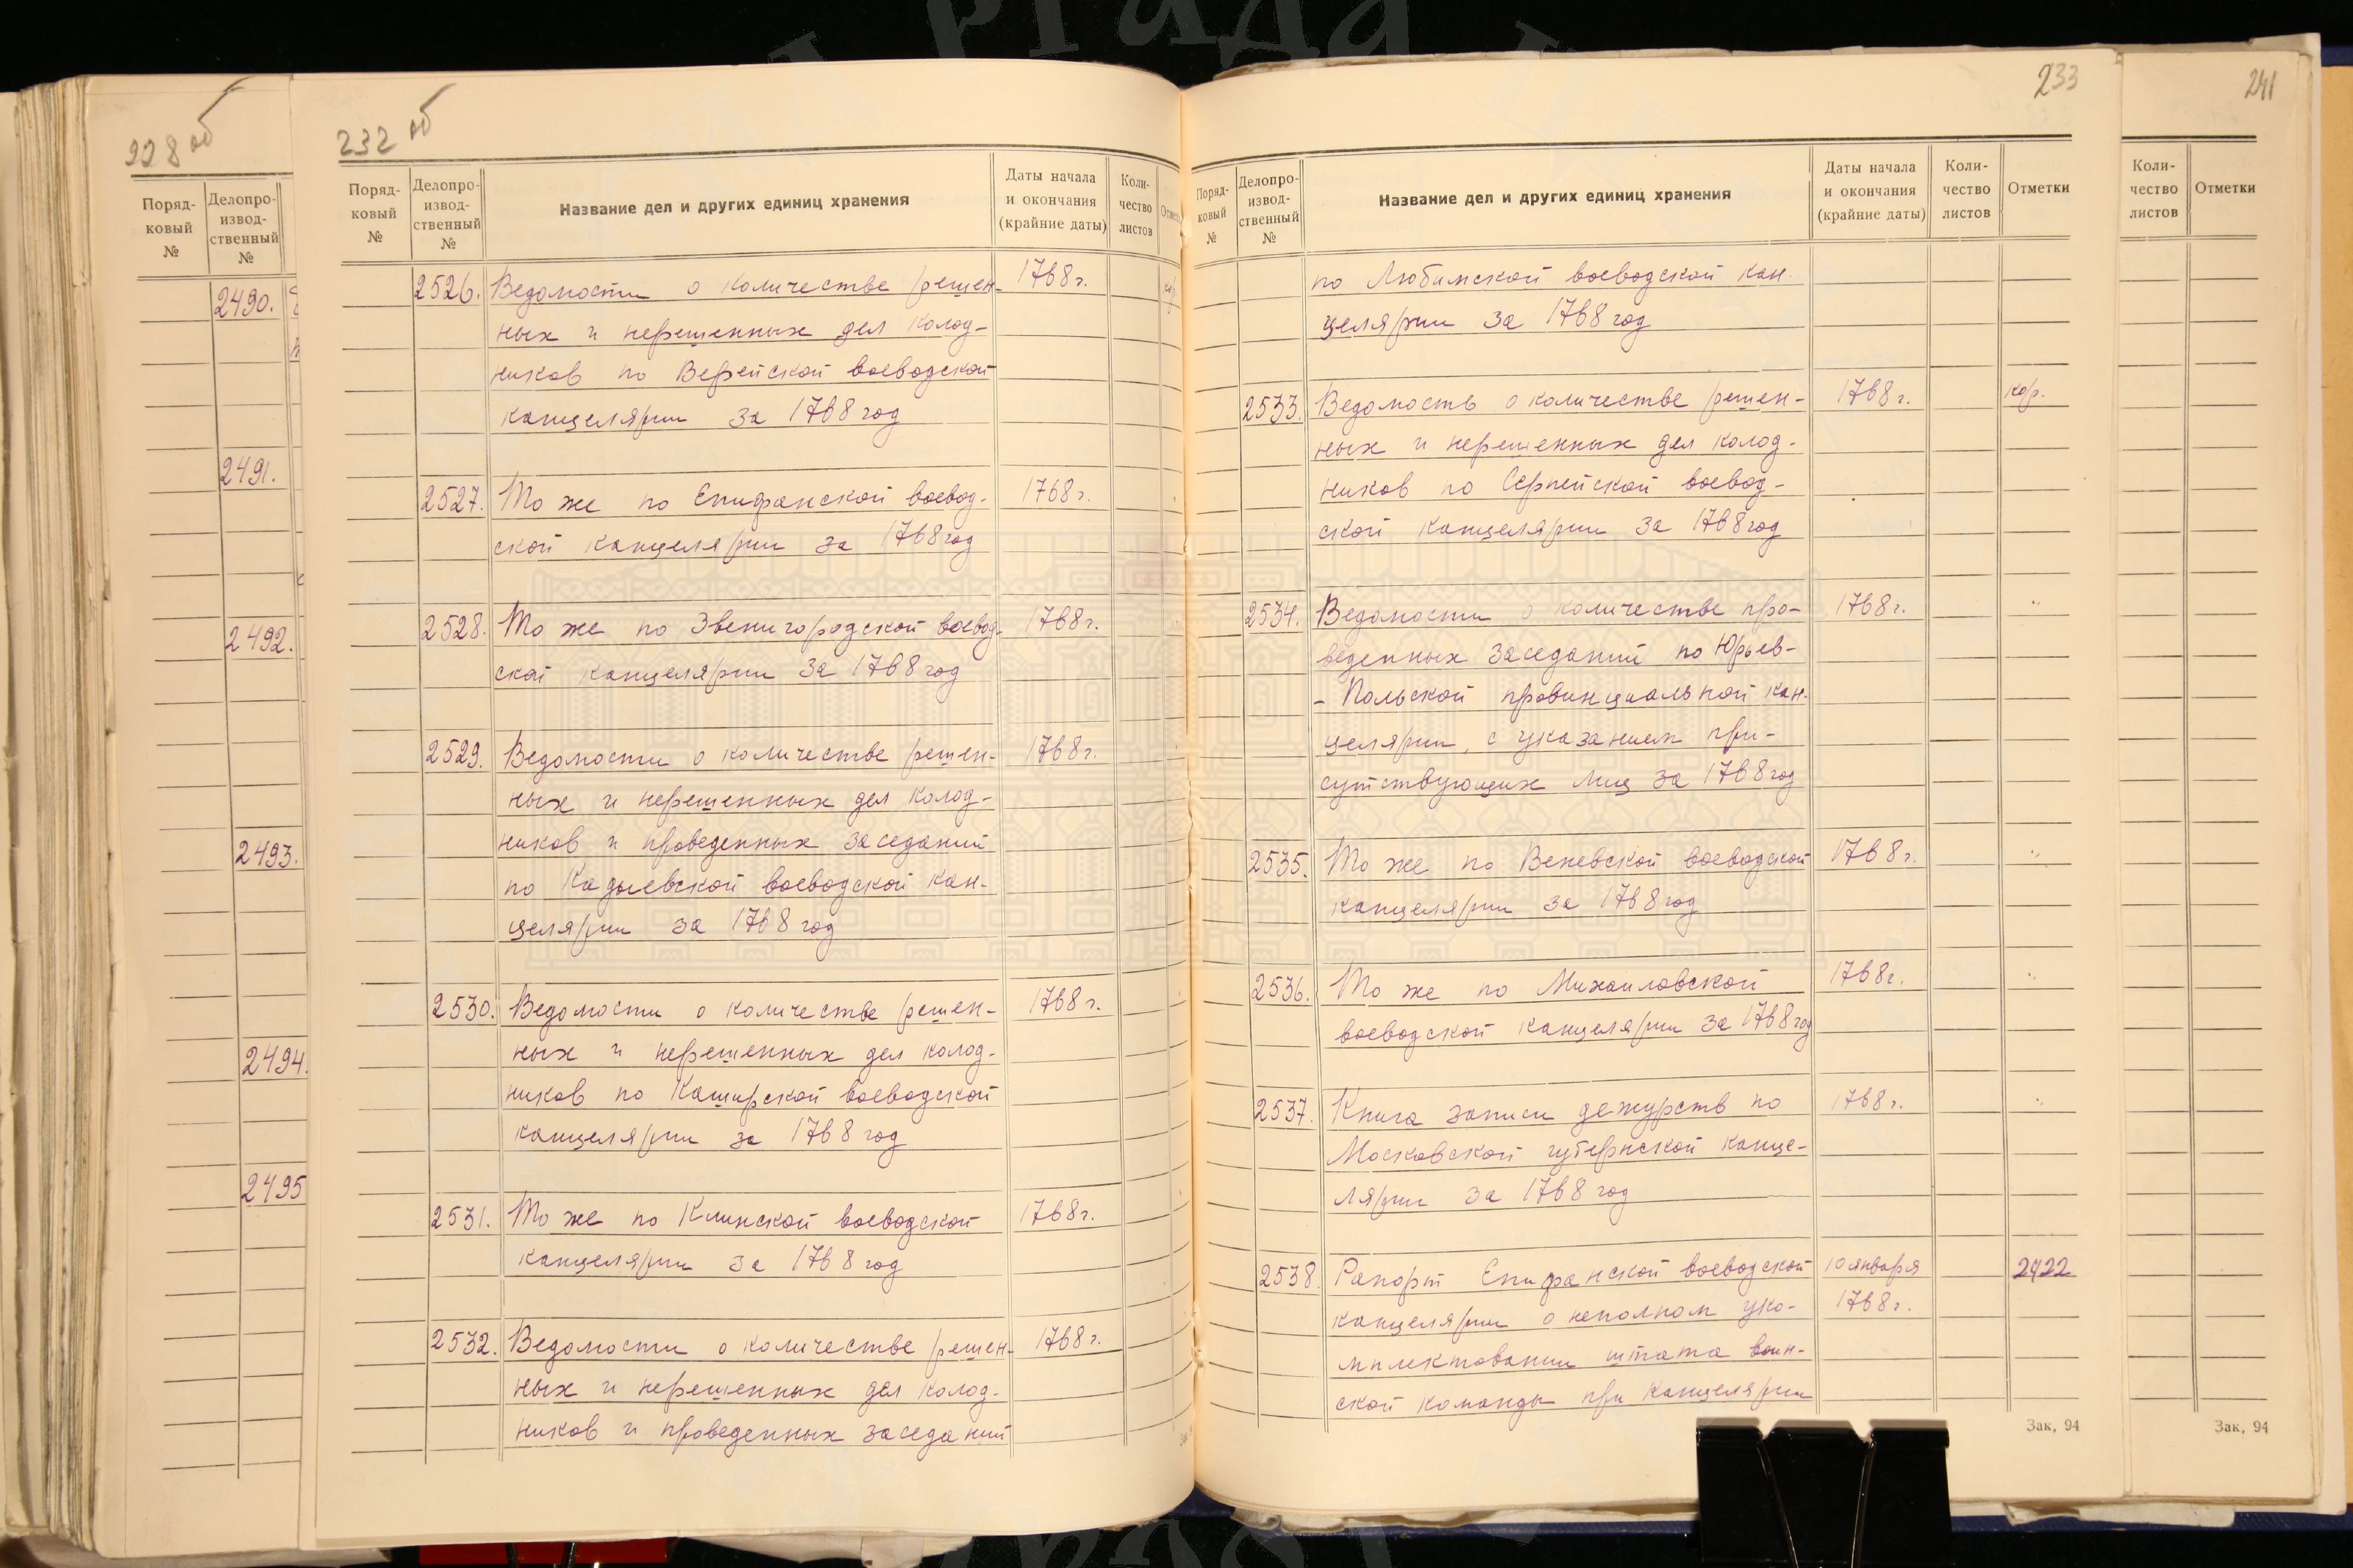 228 об
Поряд-
ковый
№
Делопро-
извод-
ственный
№
2490.
2491.
2492.
2493.
2494.
2495
232 об
Поряд-
ковый
№
Делопро-
извод-
ственный
№
Название дел и других единиц хранения
Даты начала
и окончания
(крайние даты)
Коли-
чество
листов
2526. Ведомости о количестве решен- 1768 г.
ных и нерешенных дел колод-
ников по Верейской воеводской
канцелярии за 1768 год
2527. То же по Епифанской воевод- 1768 г.
ской канцелярии за 1768 год
2528. То же по Звенигородской воевод- 1768 г.
ской канцелярии за 1768 год
2529. Ведомости о количестве решен- 1768 г.
ных и нерешенных дел колод-
ников и проведенных заседаний
по Кадыевской воеводской кан-
целярии за 1768 год
2530. Ведомости о количестве решен- 1768 г.
ных и нерешенных дел колод-
ников по Каширской воеводской
канцелярии за 1768 год
2531. То же по Клинской воеводской 1768 г.
канцелярии за 1768 год
2532. Ведомости о количестве решен- 1768 г.
ных и нерешенных дел колод-
ников и проведенных заседаний
233
Поряд-
ковый
№
Делопро-
извод-
ственный
№
Название дел и других единиц хранения
Даты начала
и окончания
(крайние даты)
Коли-
чество
листов
Отметки
по Любимской воеводской кан-
целярии за 1768 год
2533. Ведомость о количестве решен- 1768 г. кор.
ных и нерешенных дел колод-
ников по Серпейской воевод-
ской канцелярии за 1768 год
2534. Ведомости о количестве про- 1768 г. "
веденных заседаний по Юрьев-
-Польской провинциальной кан-
целярии, с указанием при-
сутствующих лиц за 1768 год
2535. То же по Веневской воеводской 1768 г. "
канцелярии за 1768 год
2536. То же по Михайловской 1768 г. "
воеводской канцелярии за 1768 год
2537. Книга записи дежурств по 1768 г. "
Московской губернской канце-
лярии за 1768 год
2538. Рапорт Епифанской воеводской 10 января 2422
канцелярии о неполном уко- 1768 г.
мплектовании штата воин-
ской команды при канцелярии
Зак, 94
241
Коли-
чество
листов
Отметки
Зак, 94